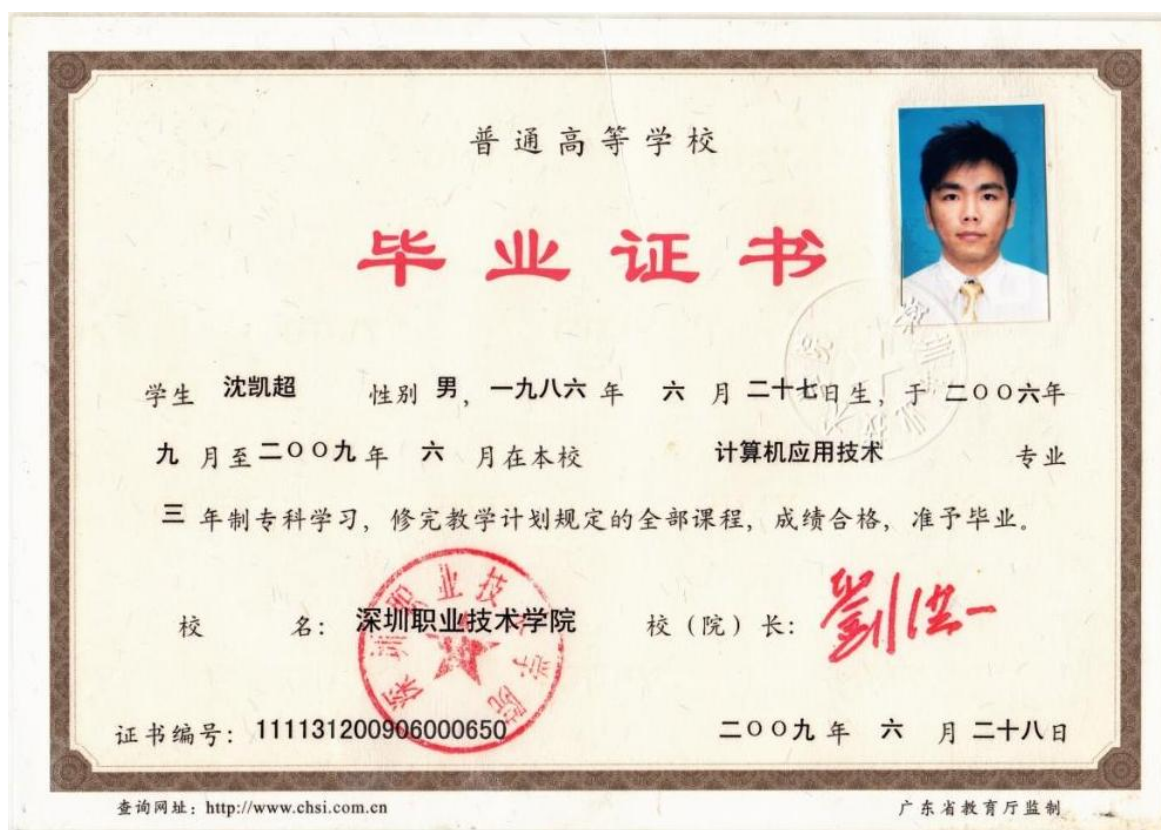 普通高等学校
毕业证书
学生 沈凯超 性别 男, 一九八六 年 六 月 二十七日生, 于 二〇〇六年
九 月至二〇〇九年 六 月在本校 计算机应用技术 专业
三 年制专科学习, 修完教学计划规定的全部课程, 成绩合格, 准予毕业。
校 名: 深圳职业技术学院 校(院)长: 劉洪一
深圳职业技术学院
证书编号: 111131200906000650 二〇〇九 年 六 月 二十八日
查询网址: http://www.chsi.com.cn 广东省教育厅监制